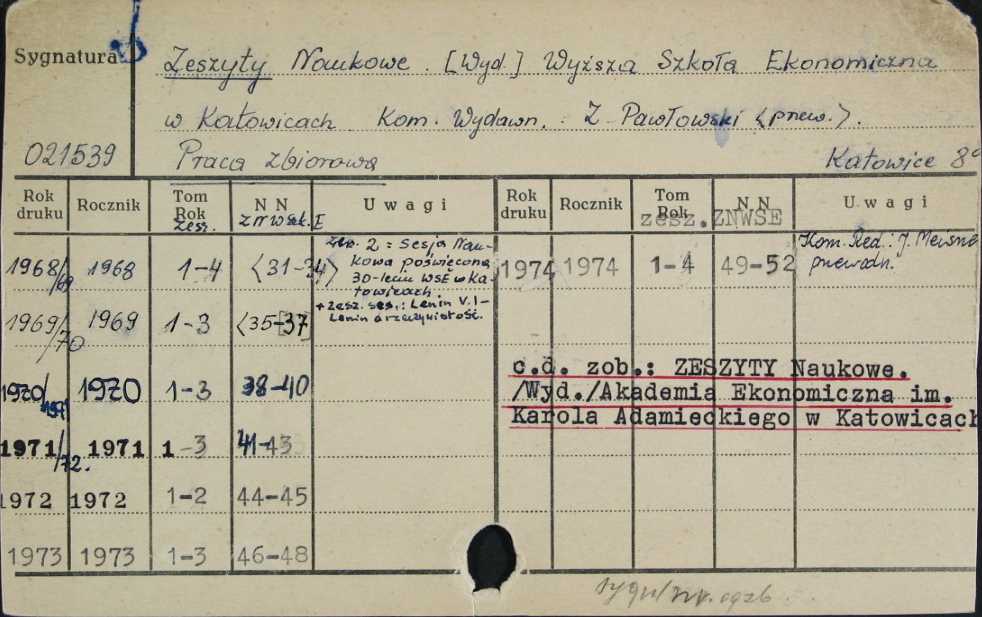 Sygnatura
Zeszyty Naukowe. [Wyd.] Wyższa Szkoła Ekonomiczna
w Katowicach Kom. Wydawn. : Z. Pawłowski <przew.>.
021539 Praca zbiorowa Katowice 8°
Rok druku Rocznik Tom Rok zesz. N N ZNWSE U w a g i Rok druku Rocznik Tom Rok zesz. N N ZNWSE U w a g i
1968/69 1968 1-4 <31-34> zesz. 2 = Sesja Nau-
kowa poświęcona
30-leciu WSE w Ka-
towicach.
+ zesz. ses.: Lenin V. I-
Lenin a rzeczywistość.
1974 1974 1-4 49-52 Kom. Red.: J.
przewodn.
1969/70 1969 1-3 <35-37>
1970/1971 1970 1-3 38-40
c.d. zob.: ZESZYTY Naukowe.
/Wyd./Akademia Ekonomiczna im.
Karola Adamieckiego w Katowicach
1971/72. 1971 1-3 41-43
1972 1972 1-2 44-45
1973 1973 1-3 46-48